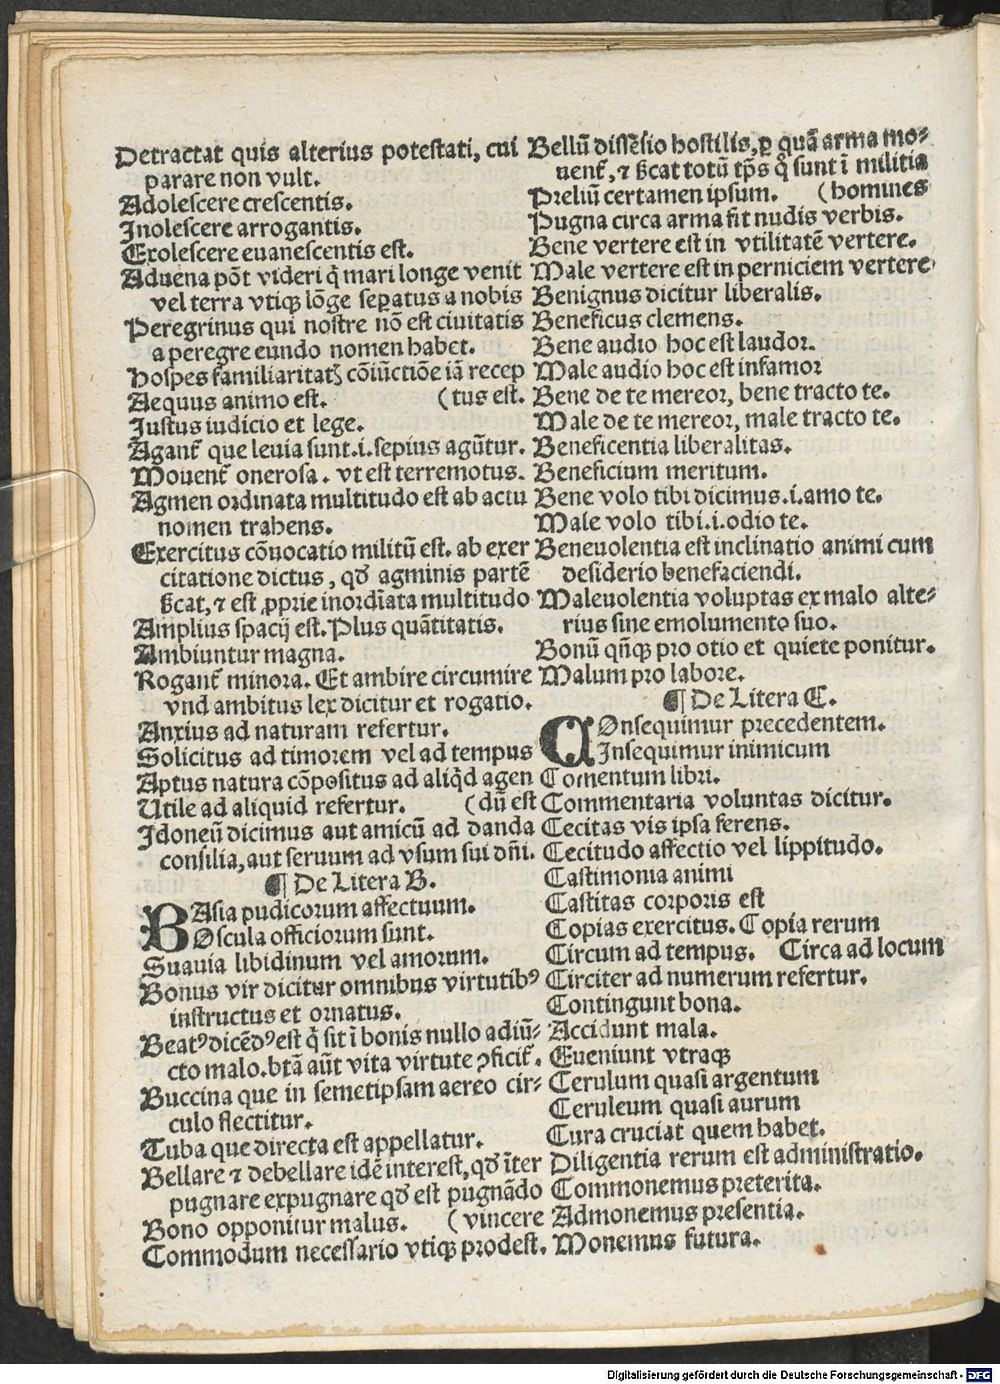 Detractat quis alterius potestati, cui
parare non vult.
Adolescere crescentis.
Inolescere arrogantis.
Exolescere euanescentis est.
Aduena põt videri q̃ mari longe venit
vel terra vtiqꝫ lõge sep̲atus a nobis
Peregrinus qui nostre nõ est ciuitatis
a peregre eundo nomen habet.
Hospes familiaritatꝫ cõiũctiõe iã recep
Aequus animo est. (tus est.
Justus iudicio et lege.
Agant᷑ que leuia sunt.i.sepius agũtur.
Mouent᷑ onerosa. vt est terremotus.
Agmen ordinata multitudo est ab actu
nomen trahens.
Exercitus cõuocatio militũ est. ab exer
citatione dictus, qđ agminis partẽ
ẞcat, ⁊ est ꝓprie inordĩata multitudo
Amplius spacij est. Plus quãtitatis.
Ambiuntur magna.
Rogant᷑ minora. Et ambire circumire
vnd ambitus lex dicitur et rogatio.
Anxius ad naturam refertur.
Solicitus ad timorem vel ad tempus
Aptus natura cõpositus ad aliq̇d agen
Utile ad aliquid refertur. (dũ est
Idoneũ dicimus aut amicũ ad danda
consilia, aut seruum ad vsum sui dñi.
¶ De Litera B.
BAsia pudicorum affectuum.
Oscula officiorum sunt.
Suauia libidinum vel amorum.
Bonus vir dicitur omnibus virtutibꝰ
instructus et ornatus.
Beatꝰ dicẽdꝰ est q̇ sit ĩ bonis nullo adiũ-
cto malo. btã aũt vita virtute ꝯficit᷑.
Buccina que in semetipsam aereo cir-
culo flectitur.
Tuba que directa est appellatur.
Bellare ⁊ debellare idẽ interest, qđ ĩter
pugnare expugnare qđ est pugnãdo
Bono opponitur malus. (vincere
Commodum necessario vtiqꝫ prodest.
Bellũ dissẽsio hostilis, ꝑ quã arma mo-
nent᷑, ⁊ ẞcat totũ tp̃s q̊ sunt ĩ militia
Preliũ certamen ipsum. (homines
Pugna circa arma fit nudis verbis.
Bene vertere est in vtilitatẽ vertere.
Male vertere est in perniciem vertere.
Benignus dicitur liberalis.
Beneficus clemens.
Bene audio hoc est laudor.
Male audio hoc est infamor
Bene de te mereor, bene tracto te.
Male de te mereor, male tracto te.
Beneficentia liberalitas.
Beneficium meritum.
Bene volo tibi dicimus.i.amo te.
Male volo tibi.i.odio te.
Beneuolentia est inclinatio animi cum
desiderio benefaciendi.
Maleuolentia voluptas ex malo alte-
rius sine emolumento suo.
Bonũ qñqꝫ pro otio et quiete ponitur.
Malum pro labore.
¶ De Litera C.
COnsequimur precedentem.
Insequimur inimicum
Comentum libri.
Commentaria voluntas dicitur.
Cecitas vis ipsa ferens.
Cecitudo affectio vel lippitudo.
Castimonia animi
Castitas corporis est
Copias exercitus. Copia rerum
Circum ad tempus. Circa ad locum
Circiter ad numerum refertur.
Contingunt bona.
Accidunt mala.
Eueniunt vtraqꝫ
Cerulum quasi argentum
Ceruleum quasi aurum
Cura cruciat quem habet.
Diligentia rerum est administratio.
Commonemus preterita.
Admonemus presentia.
Monemus futura.
Digitalisierung gefördert durch die Deutsche Forschungsgemeinschaft - DFG